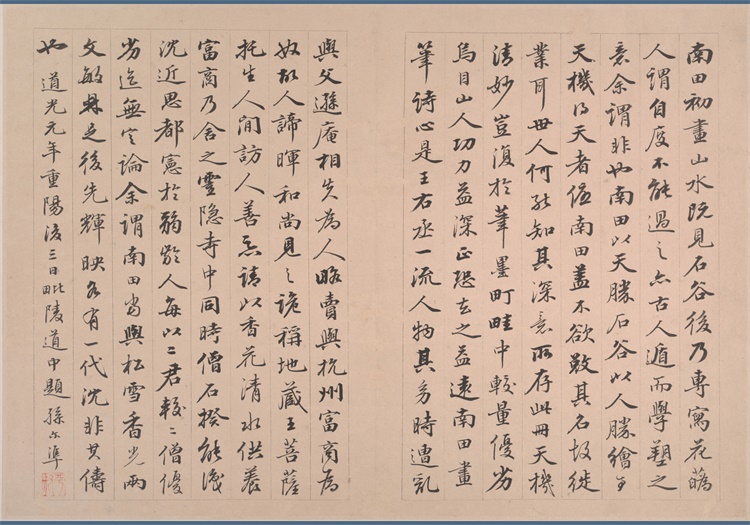 南田初畫山水既見石谷後乃專寫花蘤
人謂自度不能過之亦古人遁而學塑之
意余謂非也南田以天勝石谷以人勝繪事
天機得天者優南田蓋不欲敵其名故徙
業耳世人何能知其深意所存此冊天機
清妙豈復於筆墨町畦中較量優劣
烏目山人功力益深正恐去之益遠南田畫
筆詩心是王右丞一流人物其少時遭亂
與父遯庵相失為人略賣與杭州富商為
奴故人諦暉和尚見之詭稱地藏王菩薩
托生人間訪人善惡請以香花清水供養
富商乃舍之靈隱寺中同時僧石揆能識
沈近思都憲於弱齡人每以二君較二僧優
劣迄無定論余謂南田當與松雪香光兩
文敏異足後先輝映各有一代沈非其儔
也 道光元年重陽後三日毗陵道中題孫尔準